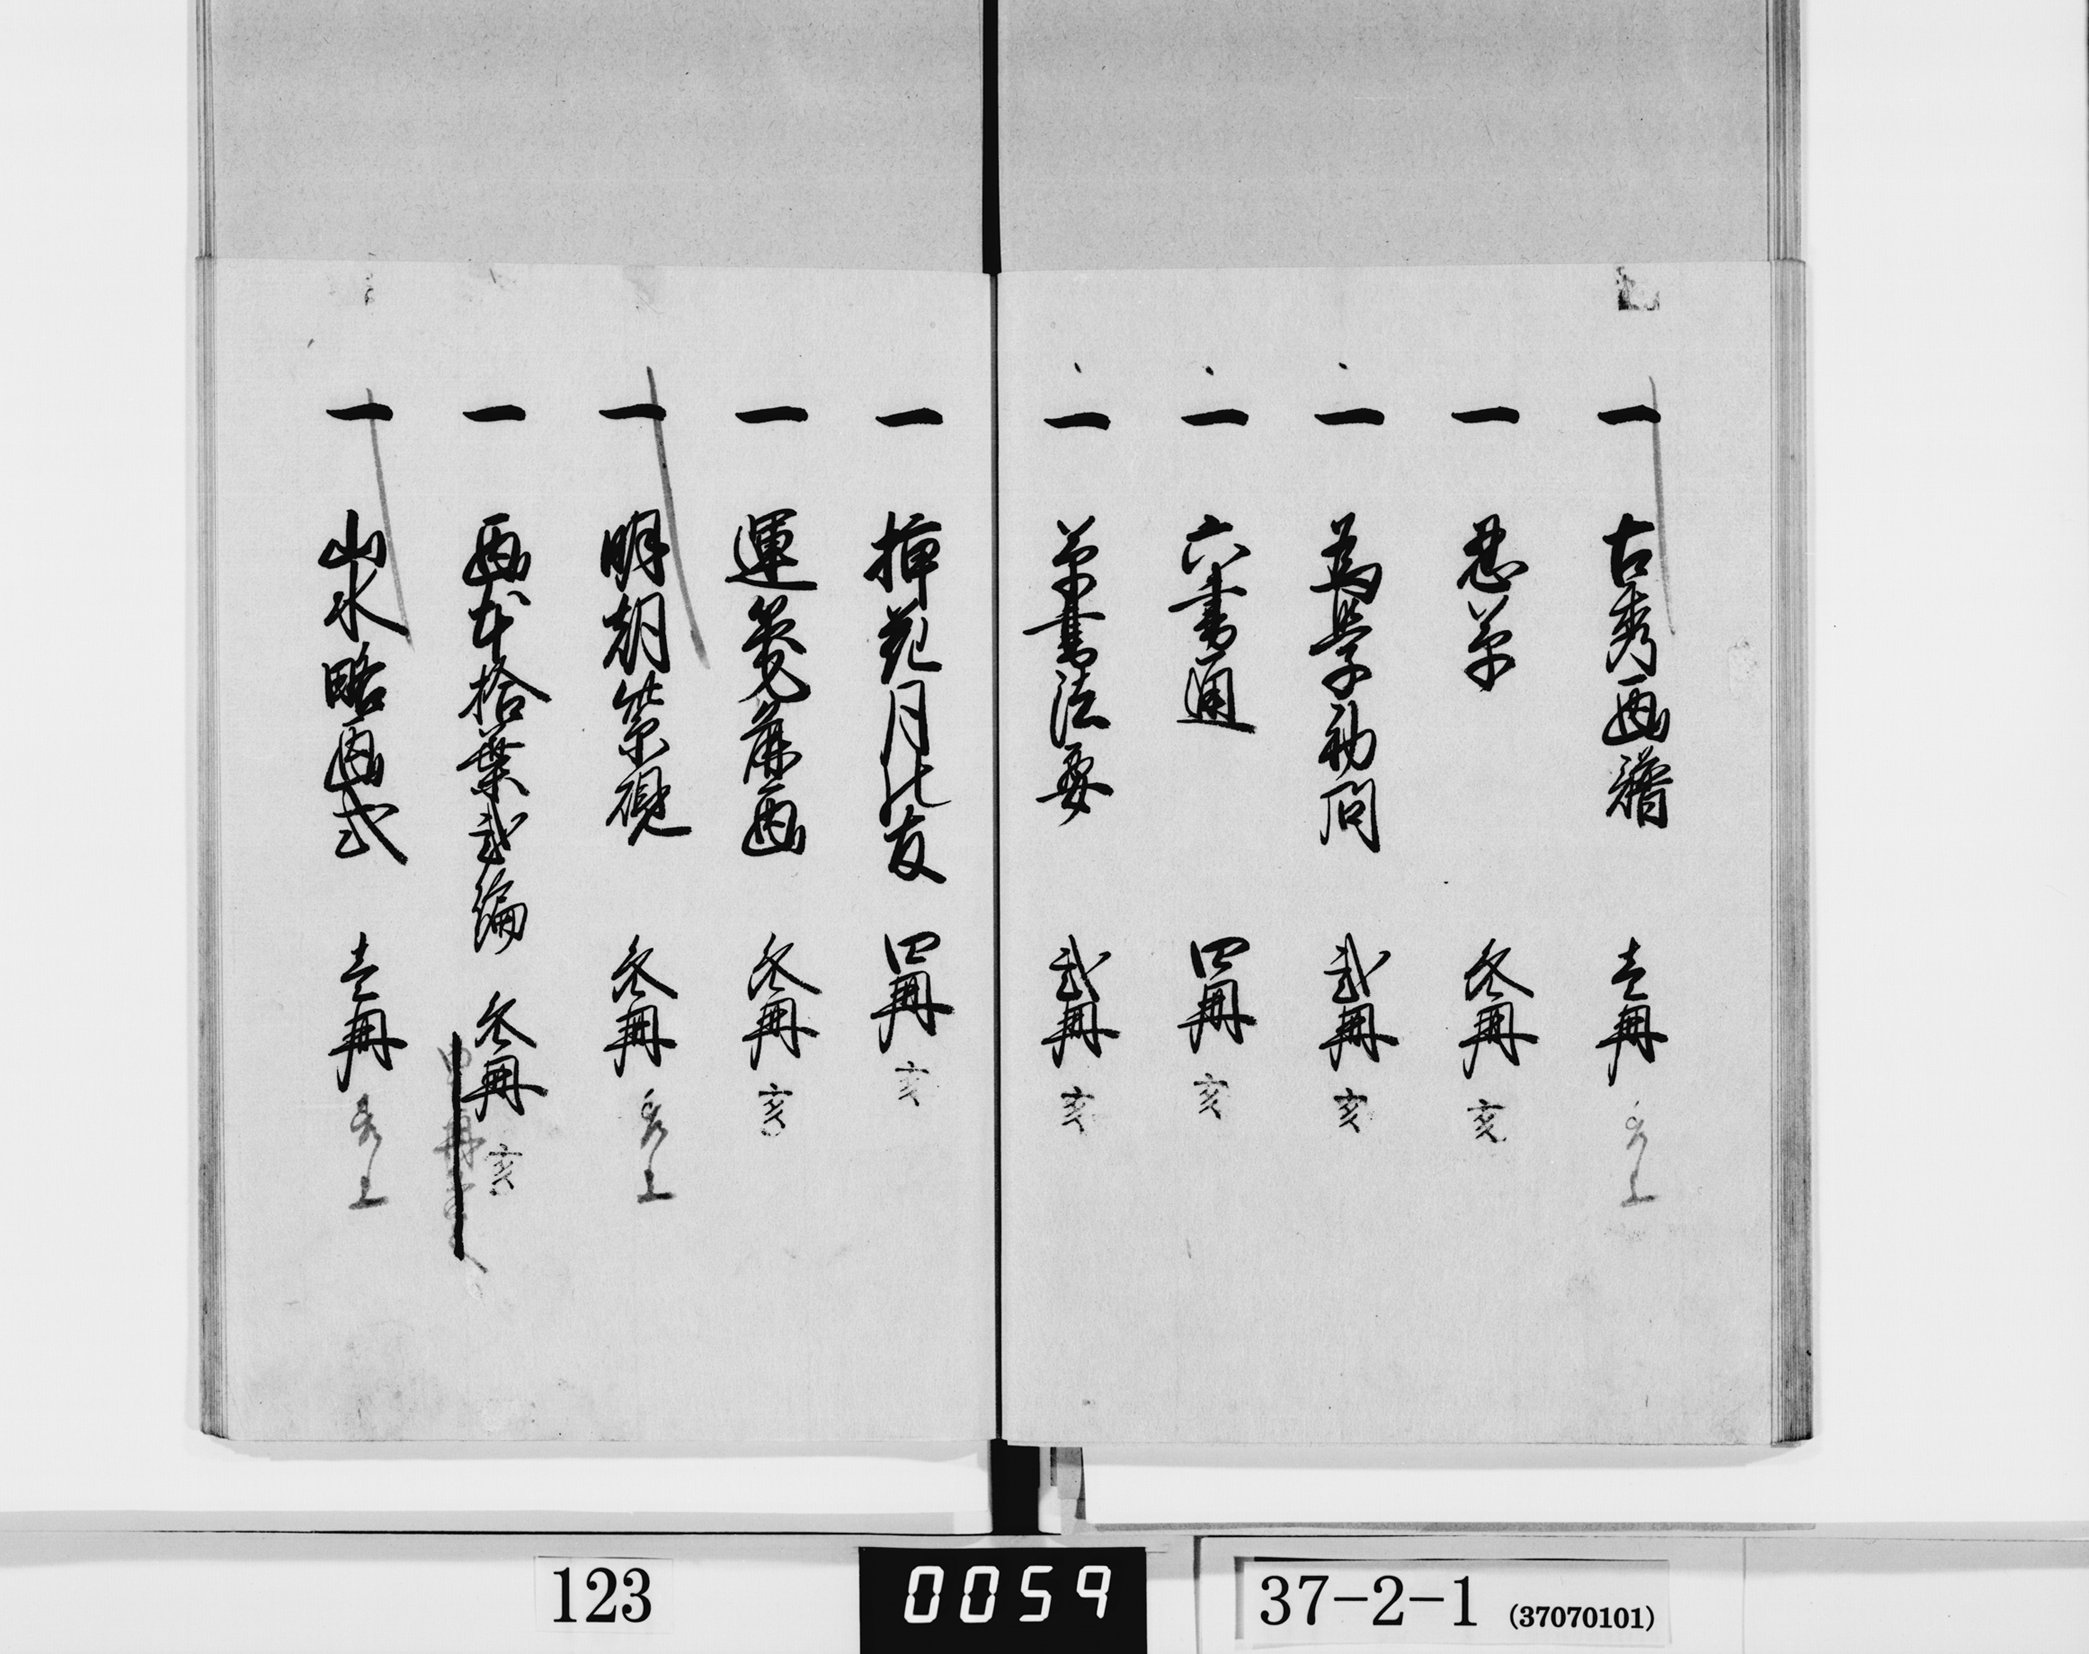 一 古秀画譜 壱冊
一 忍草 参冊 亥
一 為学初問 弐冊 亥
一 六書通 四冊 亥
一 草書法要 弐冊 亥
一 挿花月比友 四冊 亥
一 運筆麁画 参冊 亥
一 明朝紫硯 参冊
一 画本拾葉弐編 参冊 亥
一 山水略画式 壱冊
123
0059
37-2-1 (37070101)